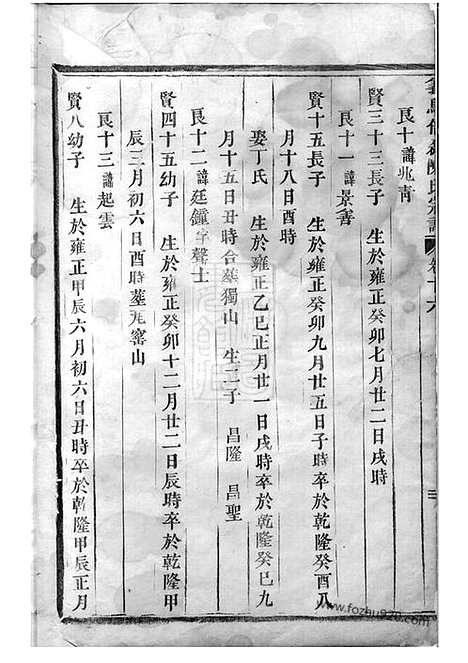 良十諱兆青
賢三十三長子 生於雍正癸卯七月廿二日戌時
良十一諱景書
賢十五長子 生於雍正癸卯九月廿五日子時卒於乾隆癸酉八
月十八日酉時
娶丁氏 生於雍正乙巳正月廿一日戌時卒於乾隆癸巳九
月十五日丑時合葬獨山 生二子 昌隆 昌聖
良十二諱廷鐘字聲士
賢四十五幼子 生於雍正癸卯十二月廿二日辰時卒於乾隆甲
辰三月初六日酉時葬瓦窰山
良十三諱起雲
賢八幼子 生於雍正甲辰六月初六日丑時卒於乾隆甲辰正月
www.fozhu920.com